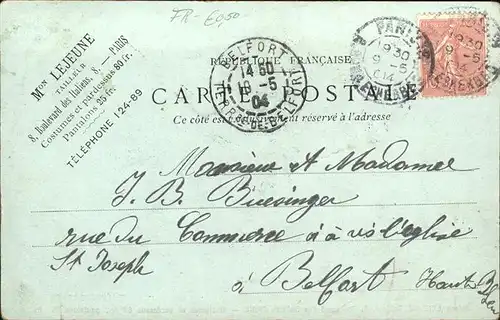 FR - €0,50
Mon LEJEUNE
TAILLEUR
8, Boulevard des Italiens, 8 — PARIS
Costumes et pardessus 80 fr.
Pantalons 25 fr.
TÉLÉPHONE 124-89
RÉPUBLIQUE FRANÇAISE
CARTE POSTALE
Ce côté est exclusivement réservé à l'adresse
BELFORT
14 50
9 -5
04
TERRre DE BELFORT
PARIS
19 30
9 -5
04
Monsieur & Madame
J. B. Buesinger
rue du Commerce vis à vis l'église
St Joseph
à Belfort Haut-Rhin